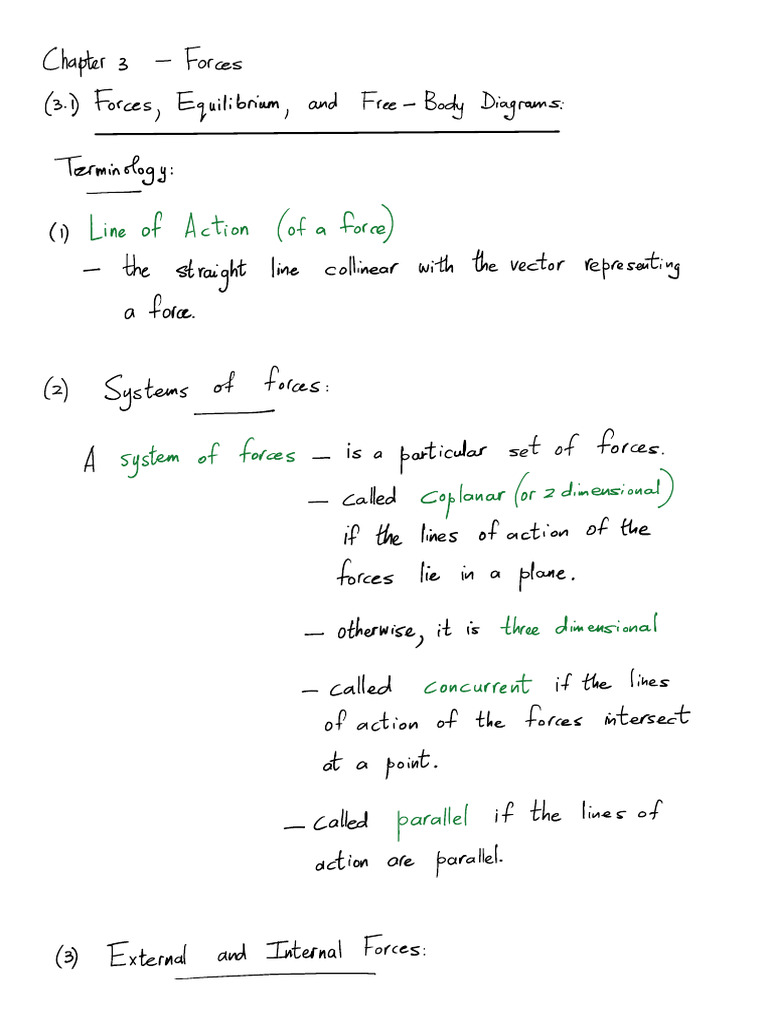 Chapter 3 – Forces
(3.1) Forces, Equilibrium, and Free-Body Diagrams:
Terminology:
(1) Line of Action (of a force)
– the straight line collinear with the vector representing
a force.
(2) Systems of forces:
A system of forces – is a particular set of forces.
– called coplanar (or 2 dimensional)
if the lines of action of the
forces lie in a plane.
– otherwise, it is three dimensional
– called concurrent if the lines
of action of the forces intersect
at a point.
– called parallel if the lines of
action are parallel.
(3) External and Internal Forces: